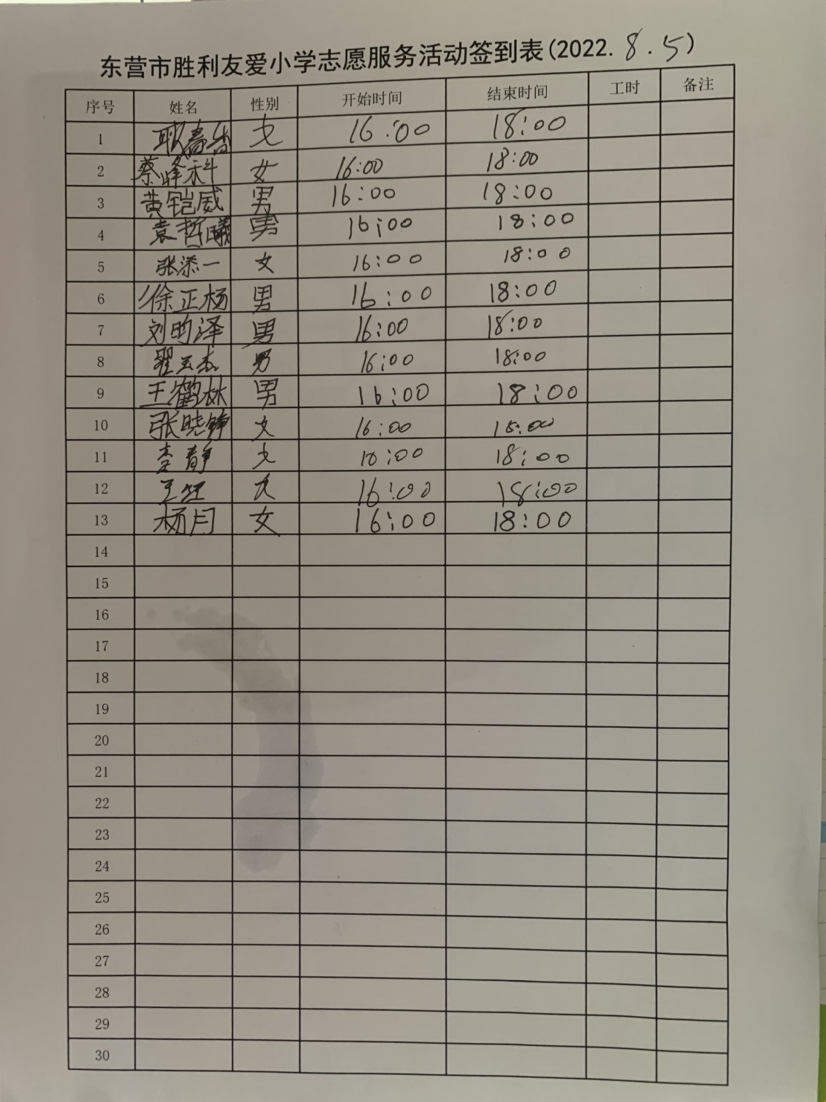 东营市胜利友爱小学志愿服务活动签到表(2022.8.5)
序号 姓名 性别 开始时间 结束时间 工时 备注
1 女 16:00 18:00
2 蔡峰科 女 16:00 18:00
3 黄铠威 男 16:00 18:00
4 袁哲曦 男 16:00 18:00
5 张添一 女 16:00 18:00
6 徐正杨 男 16:00 18:00
7 刘昀泽 男 16:00 18:00
8 翟玉杰 男 16:00 18:00
9 王鹤林 男 16:00 18:00
10 张晓铮 女 16:00 18:00
11 李静 女 16:00 18:00
12 女 16:00 18:00
13 杨月 女 16:00 18:00
14
15
16
17
18
19
20
21
22
23
24
25
26
27
28
29
30